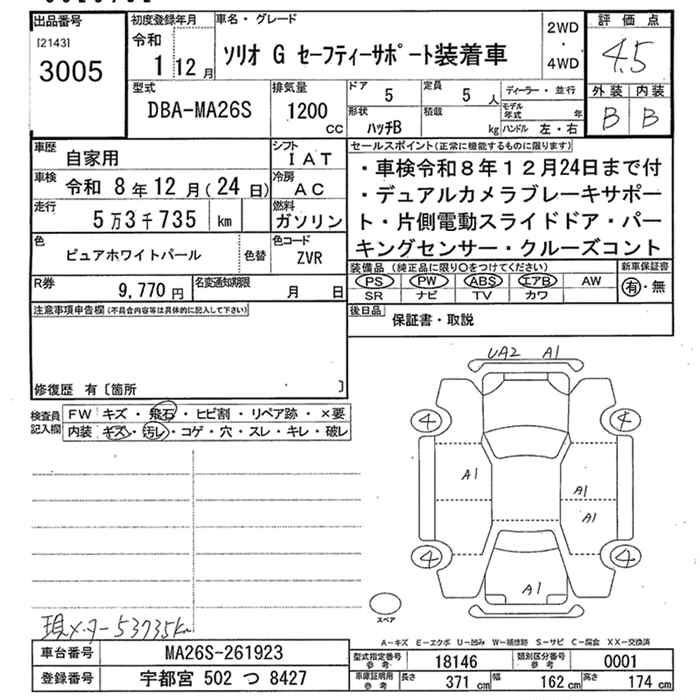 出品番号
[2143]
3005
初度登録年月
令和
1 12月
車名・グレード
ソリオ G セーフティーサポート装着車
2WD
・
4WD
評価点
4.5
外装 内装
B B
型式
DBA-MA26S
排気量
1200
cc
ドア
5
定員
5 人
形状
ハッチB
積載
kg
ディーラー・並行
モデル年式 年
ハンドル 左・右
車歴 自家用
車検 令和 8年 12月(24日)
走行 5万3千735 km
色 ピュアホワイトパール 色替
シフト
IAT
冷房
AC
燃料
ガソリン
色コード
ZVR
R券 9,770円
名変通知期限 月 日
セールスポイント(正常に機能するものに限ります)
・車検令和8年12月24日まで付
・デュアルカメラブレーキサポー
ト・片側電動スライドドア・パー
キングセンサー・クルーズコント
装備品(純正品に限り○をつけてください)
PS PW ABS エアB AW
SR ナビ TV カワ
新車保証書
有・無
後日品 保証書・取説
注意事項申告欄(不具合内容等は具体的に記入して下さい)
修復歴 有〔箇所 〕
検査員
記入欄
FW キズ・飛石・ヒビ割・リペア跡・×要
内装 キズ・汚レ・コゲ・穴・スレ・キレ・破レ
UA2 A1
4 4
A1 A1
A1
4 4
A1
スペア
現メーター53735km
A−キズ E−エクボ U−凹み W−補修跡 S−サビ C−腐食 XX−交換済
車台番号 MA26S-261923
登録番号 宇都宮 502 つ 8427
型式指定番号
参考
18146
類別区分番号
参考
0001
車庫証明用
参考
長さ 371 cm 幅 162 cm 高さ 174 cm